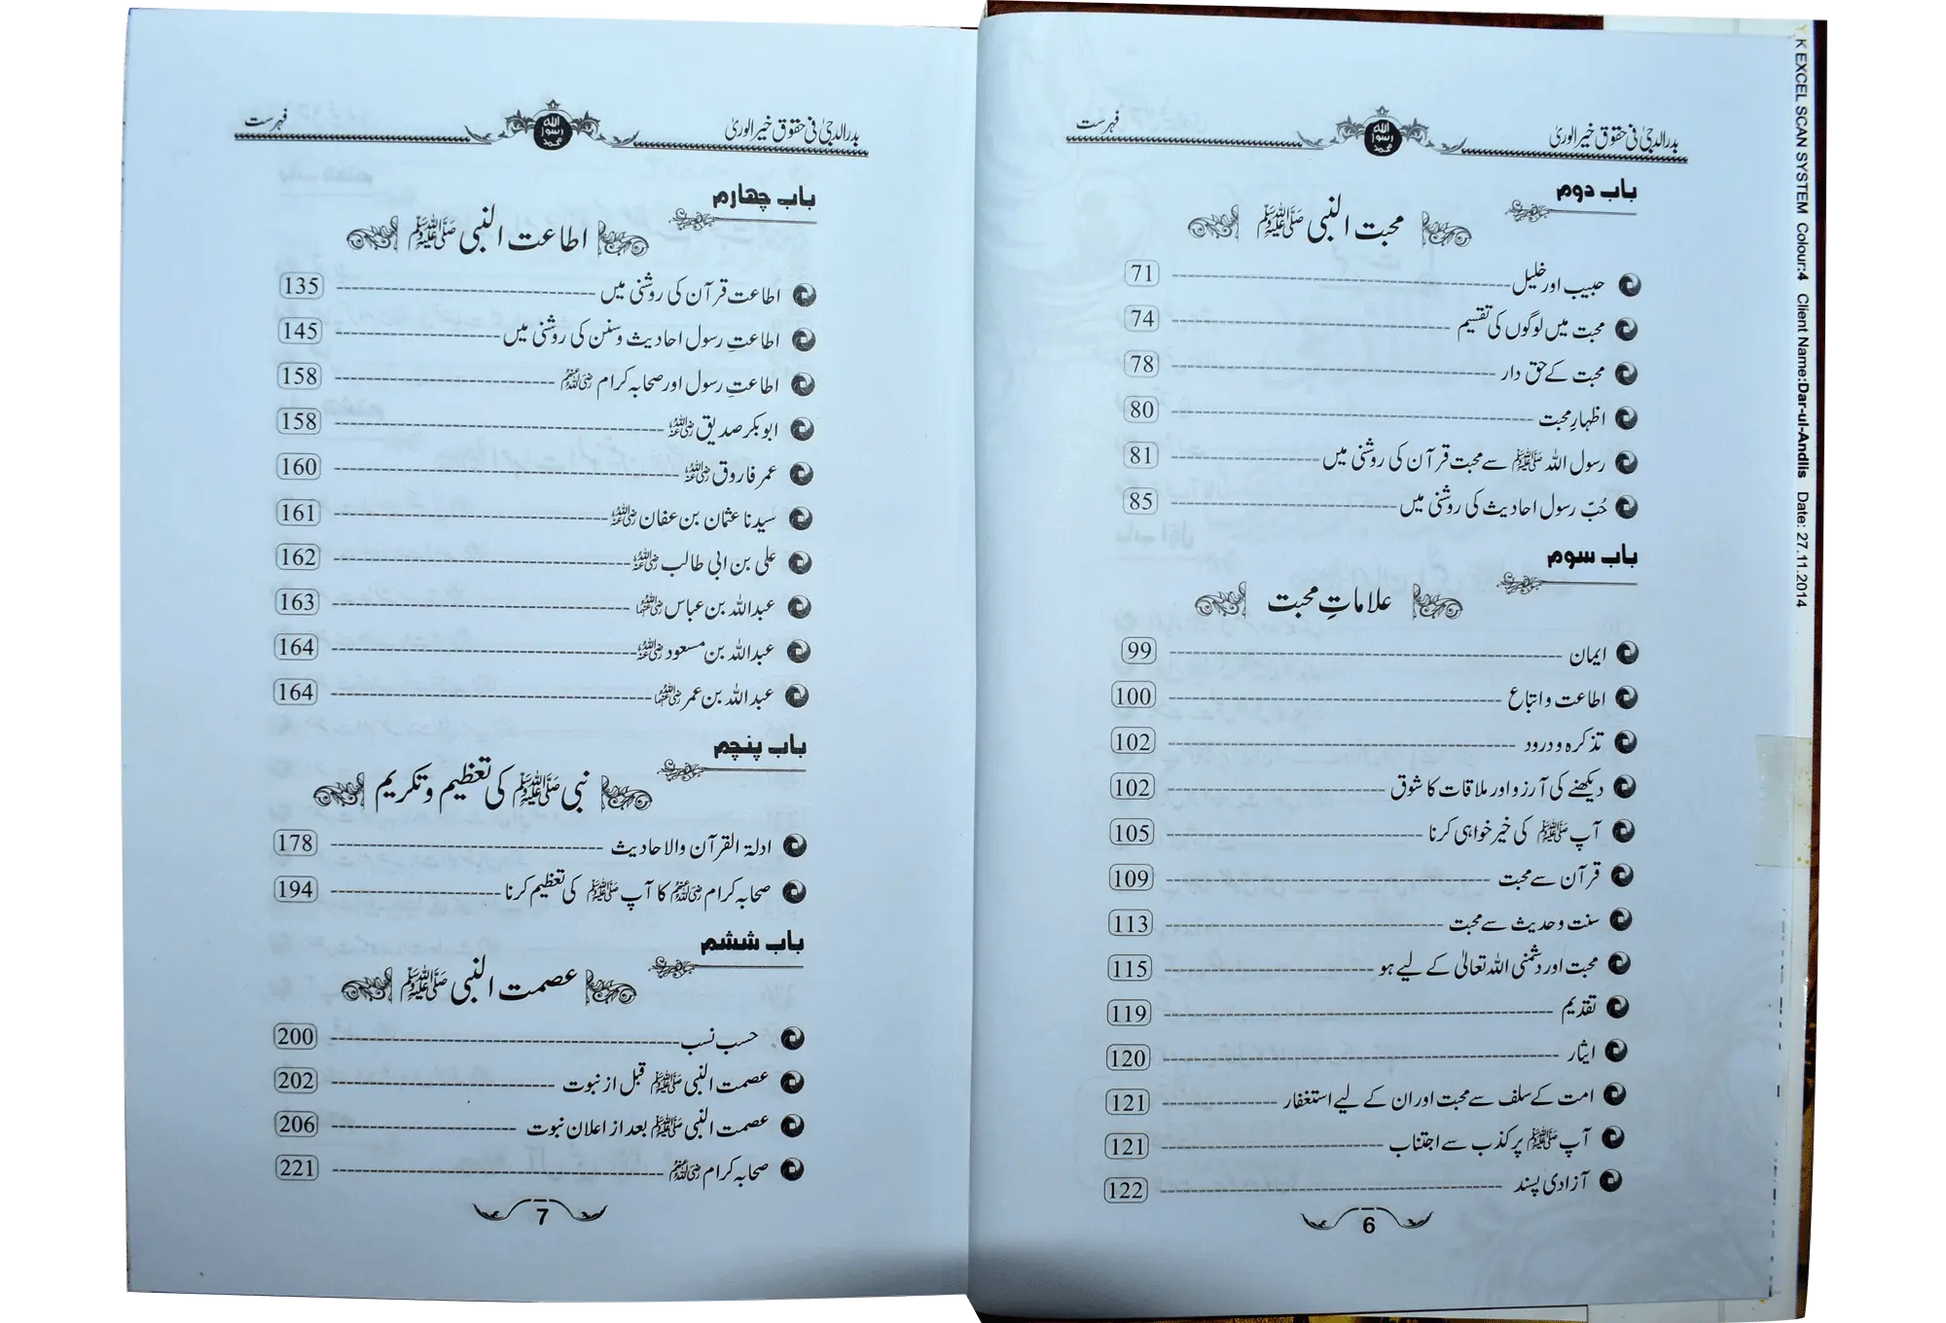 بدر الدجیٰ فی حقوق خیر الوریٰ
اللہ رسول محمد
فہرست
باب دوم
محبت النبی ﷺ
حبیب اور خلیل 71
محبت میں لوگوں کی تقسیم 74
محبت کے حق دار 78
اظہارِ محبت 80
رسول اللہ ﷺ سے محبت قرآن کی روشنی میں 81
حُبّ رسول احادیث کی روشنی میں 85
باب سوم
علاماتِ محبت
ایمان 99
اطاعت و اتباع 100
تذکرہ و درود 102
دیکھنے کی آرزو اور ملاقات کا شوق 102
آپ ﷺ کی خیر خواہی کرنا 105
قرآن سے محبت 109
سنت و حدیث سے محبت 113
محبت اور دشمنی اللہ تعالیٰ کے لیے ہو 115
تقدیم 119
ایثار 120
امت کے سلف سے محبت اور ان کے لیے استغفار 121
آپ ﷺ پر کذب سے اجتناب 121
آزادی پسند 122
6
K EXCEL SCAN SYSTEM Colour:4 Client Name:Dar-ul-Andlis Date: 27.11.2014
بدر الدجیٰ فی حقوق خیر الوریٰ
اللہ رسول محمد
فہرست
باب چهارم
اطاعت النبی ﷺ
اطاعت قرآن کی روشنی میں 135
اطاعتِ رسول احادیث و سنن کی روشنی میں 145
اطاعتِ رسول اور صحابہ کرام رضی اللہ عنہم 158
ابوبکر صدیق رضی اللہ عنہ 158
عمر فاروق رضی اللہ عنہ 160
سیدنا عثمان بن عفان رضی اللہ عنہ 161
علی بن ابی طالب رضی اللہ عنہ 162
عبداللہ بن عباس رضی اللہ عنہما 163
عبداللہ بن مسعود رضی اللہ عنہ 164
عبداللہ بن عمر رضی اللہ عنہما 164
باب پنچم
نبی ﷺ کی تعظیم و تکریم
ادلۃ القرآن والاحادیث 178
صحابہ کرام رضی اللہ عنہم کا آپ ﷺ کی تعظیم کرنا 194
باب ششم
عصمت النبی ﷺ
حسب نسب 200
عصمت النبی ﷺ قبل از نبوت 202
عصمت النبی ﷺ بعد از اعلان نبوت 206
صحابہ کرام رضی اللہ عنہم 221
7